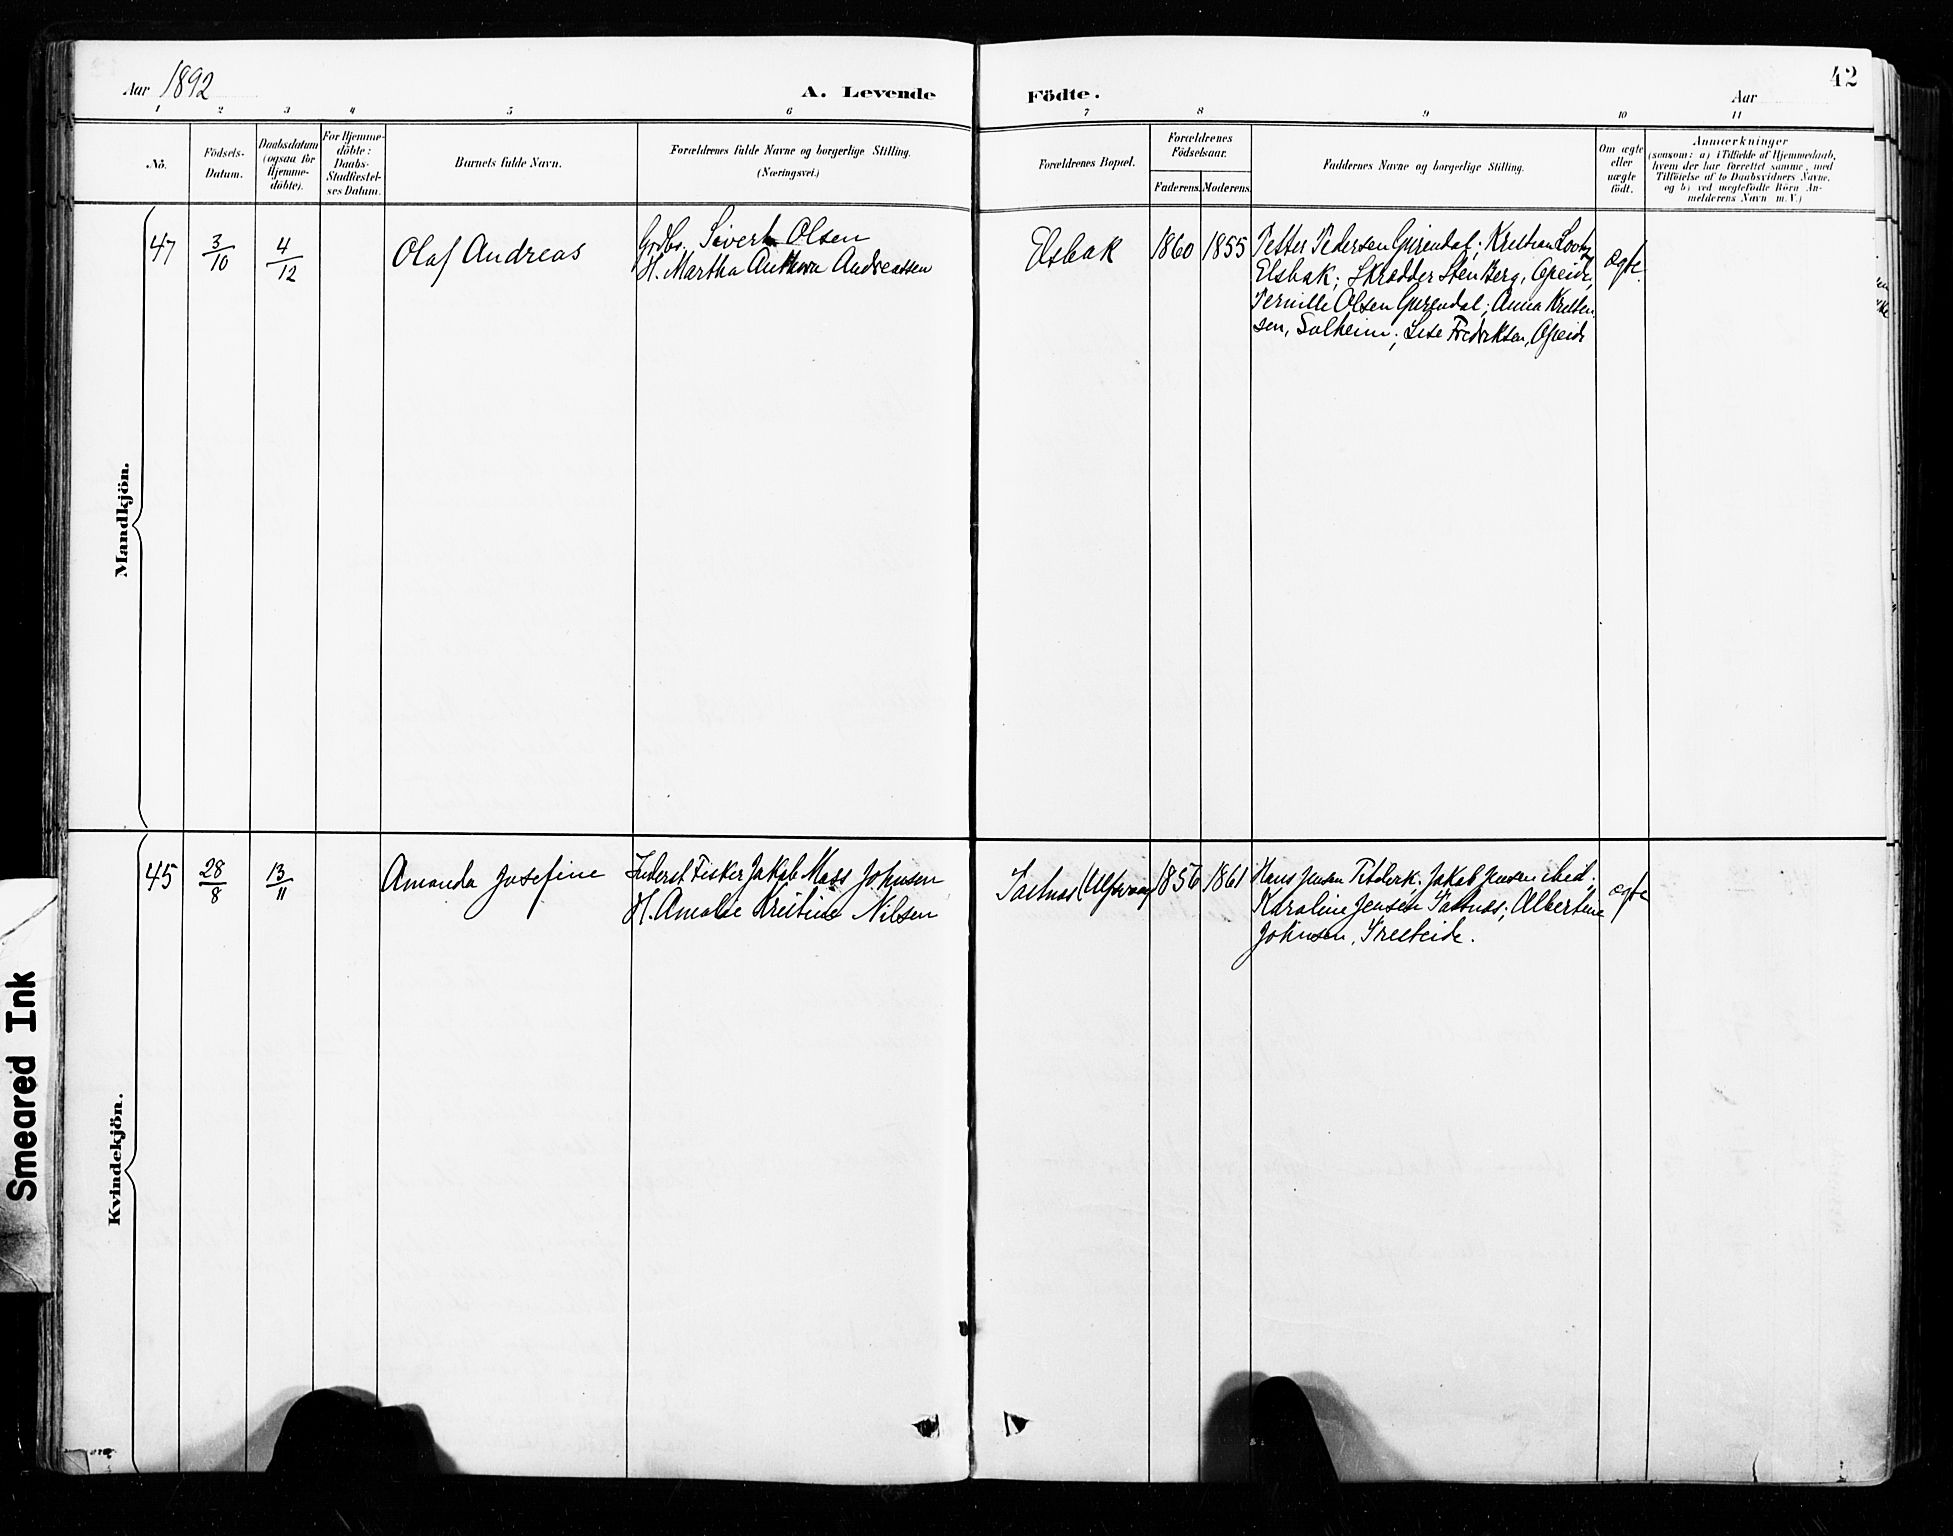 Aar 1892
A. Levende Födte.
Aar
42
1 2 3 4 5 6 7 8 9 10 11
No.
Födsels-
Datum.
Daabsdatum
(ogsaa for
Hjemme-
döbte).
For Hjemme-
döbte:
Daabs-
Stadfæstel-
ses Datum.
Barnets fulde Navn.
Forældrenes fulde Navne og borgerlige Stilling.
(Næringsvei.)
Forældrenes Bopæl.
Forældrenes
Födselsaar.
Faderens. Moderens.
Faddernes Navne og borgerlige Stilling.
Om ægte
eller
uægte
födt.
Anmærkninger
(saasom: a) i Tilfælde af Hjemmedaab,
hvem der har forrettet samme, med
Tilföielse af to Daabsvidners Navne,
og b) ved uægtefödte Börn An-
melderens Navn m.V.)
Mandkjön.
47
3/10
4/12
Olaf Andreas
Grdbr. Sivert Olsen
H. Martha Andreassen
Elsbak
1860
1855
Petter Pedersen; Kristian
Elsbak; Skrædder Sten Berg, Opeide;
Pernille Olsen; Anna Kristen-
sen, Solheim; Lise Fredriksen, Opeide
ægte.
Kvindekjön.
45
28/8
13/11
Amanda Josefine
Inderst Fisker Jakob Johnsen
H. Amalie Kristine Nilsen
1856
1861
Hans Jensen; Jakob Jensen ibid.;
Karoline Jensen; Albertine
Johnsen,
ægte
Smeared Ink